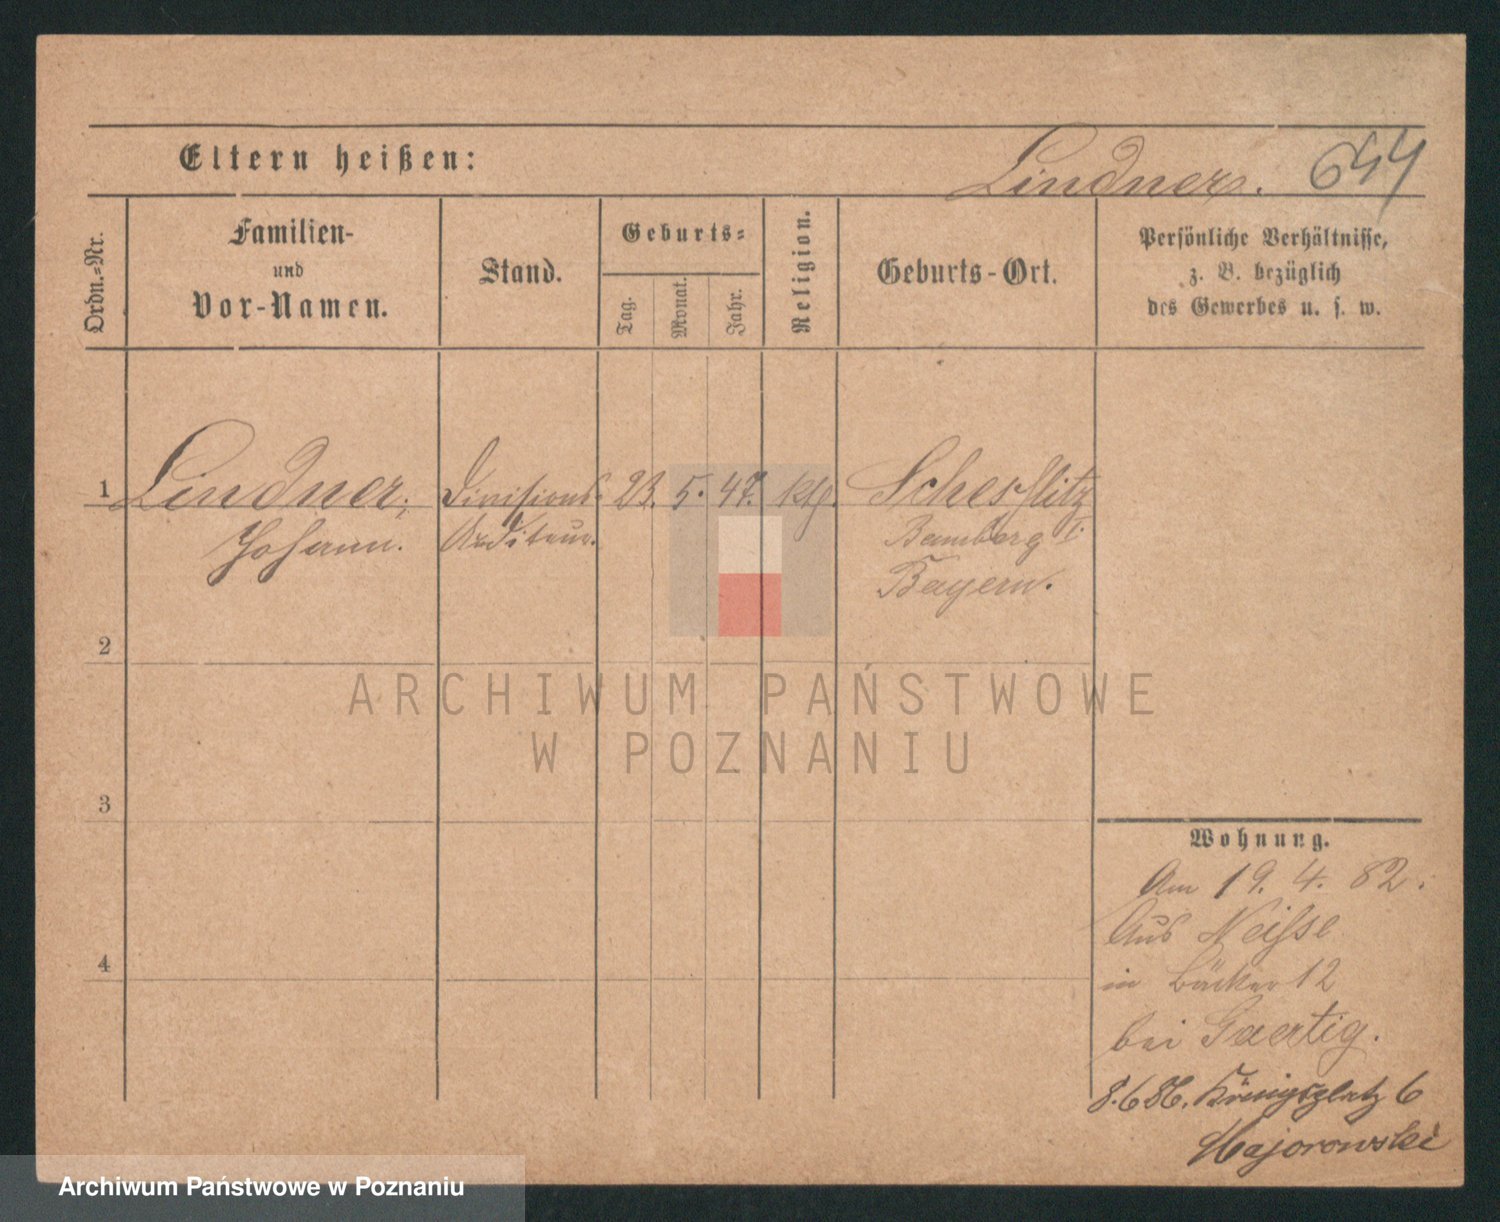 Eltern heißen:
Lindner. 644
Ordn.-Nr.
Familien-
und
Vor-Namen.
Stand.
Geburts-
Tag.
Monat.
Jahr.
Religion.
Geburts-Ort.
Persönliche Verhältnisse,
z. B. bezüglich
des Gewerbes u. s. w.
1 Lindner, Divisions- 23. 5. 47. kth. Schesslitz
Johann. Auditeur. Bamberg I.
Bayern.
2
ARCHIWUM PAŃSTWOWE
W POZNANIU
3
Wohnung.
Am 19. 4. 82.
Aus Neisse
4
in Bäcker 12
bei Gaertig.
8.6 86. Königsplatz 6
Majorowski
Archiwum Państwowe w Poznaniu